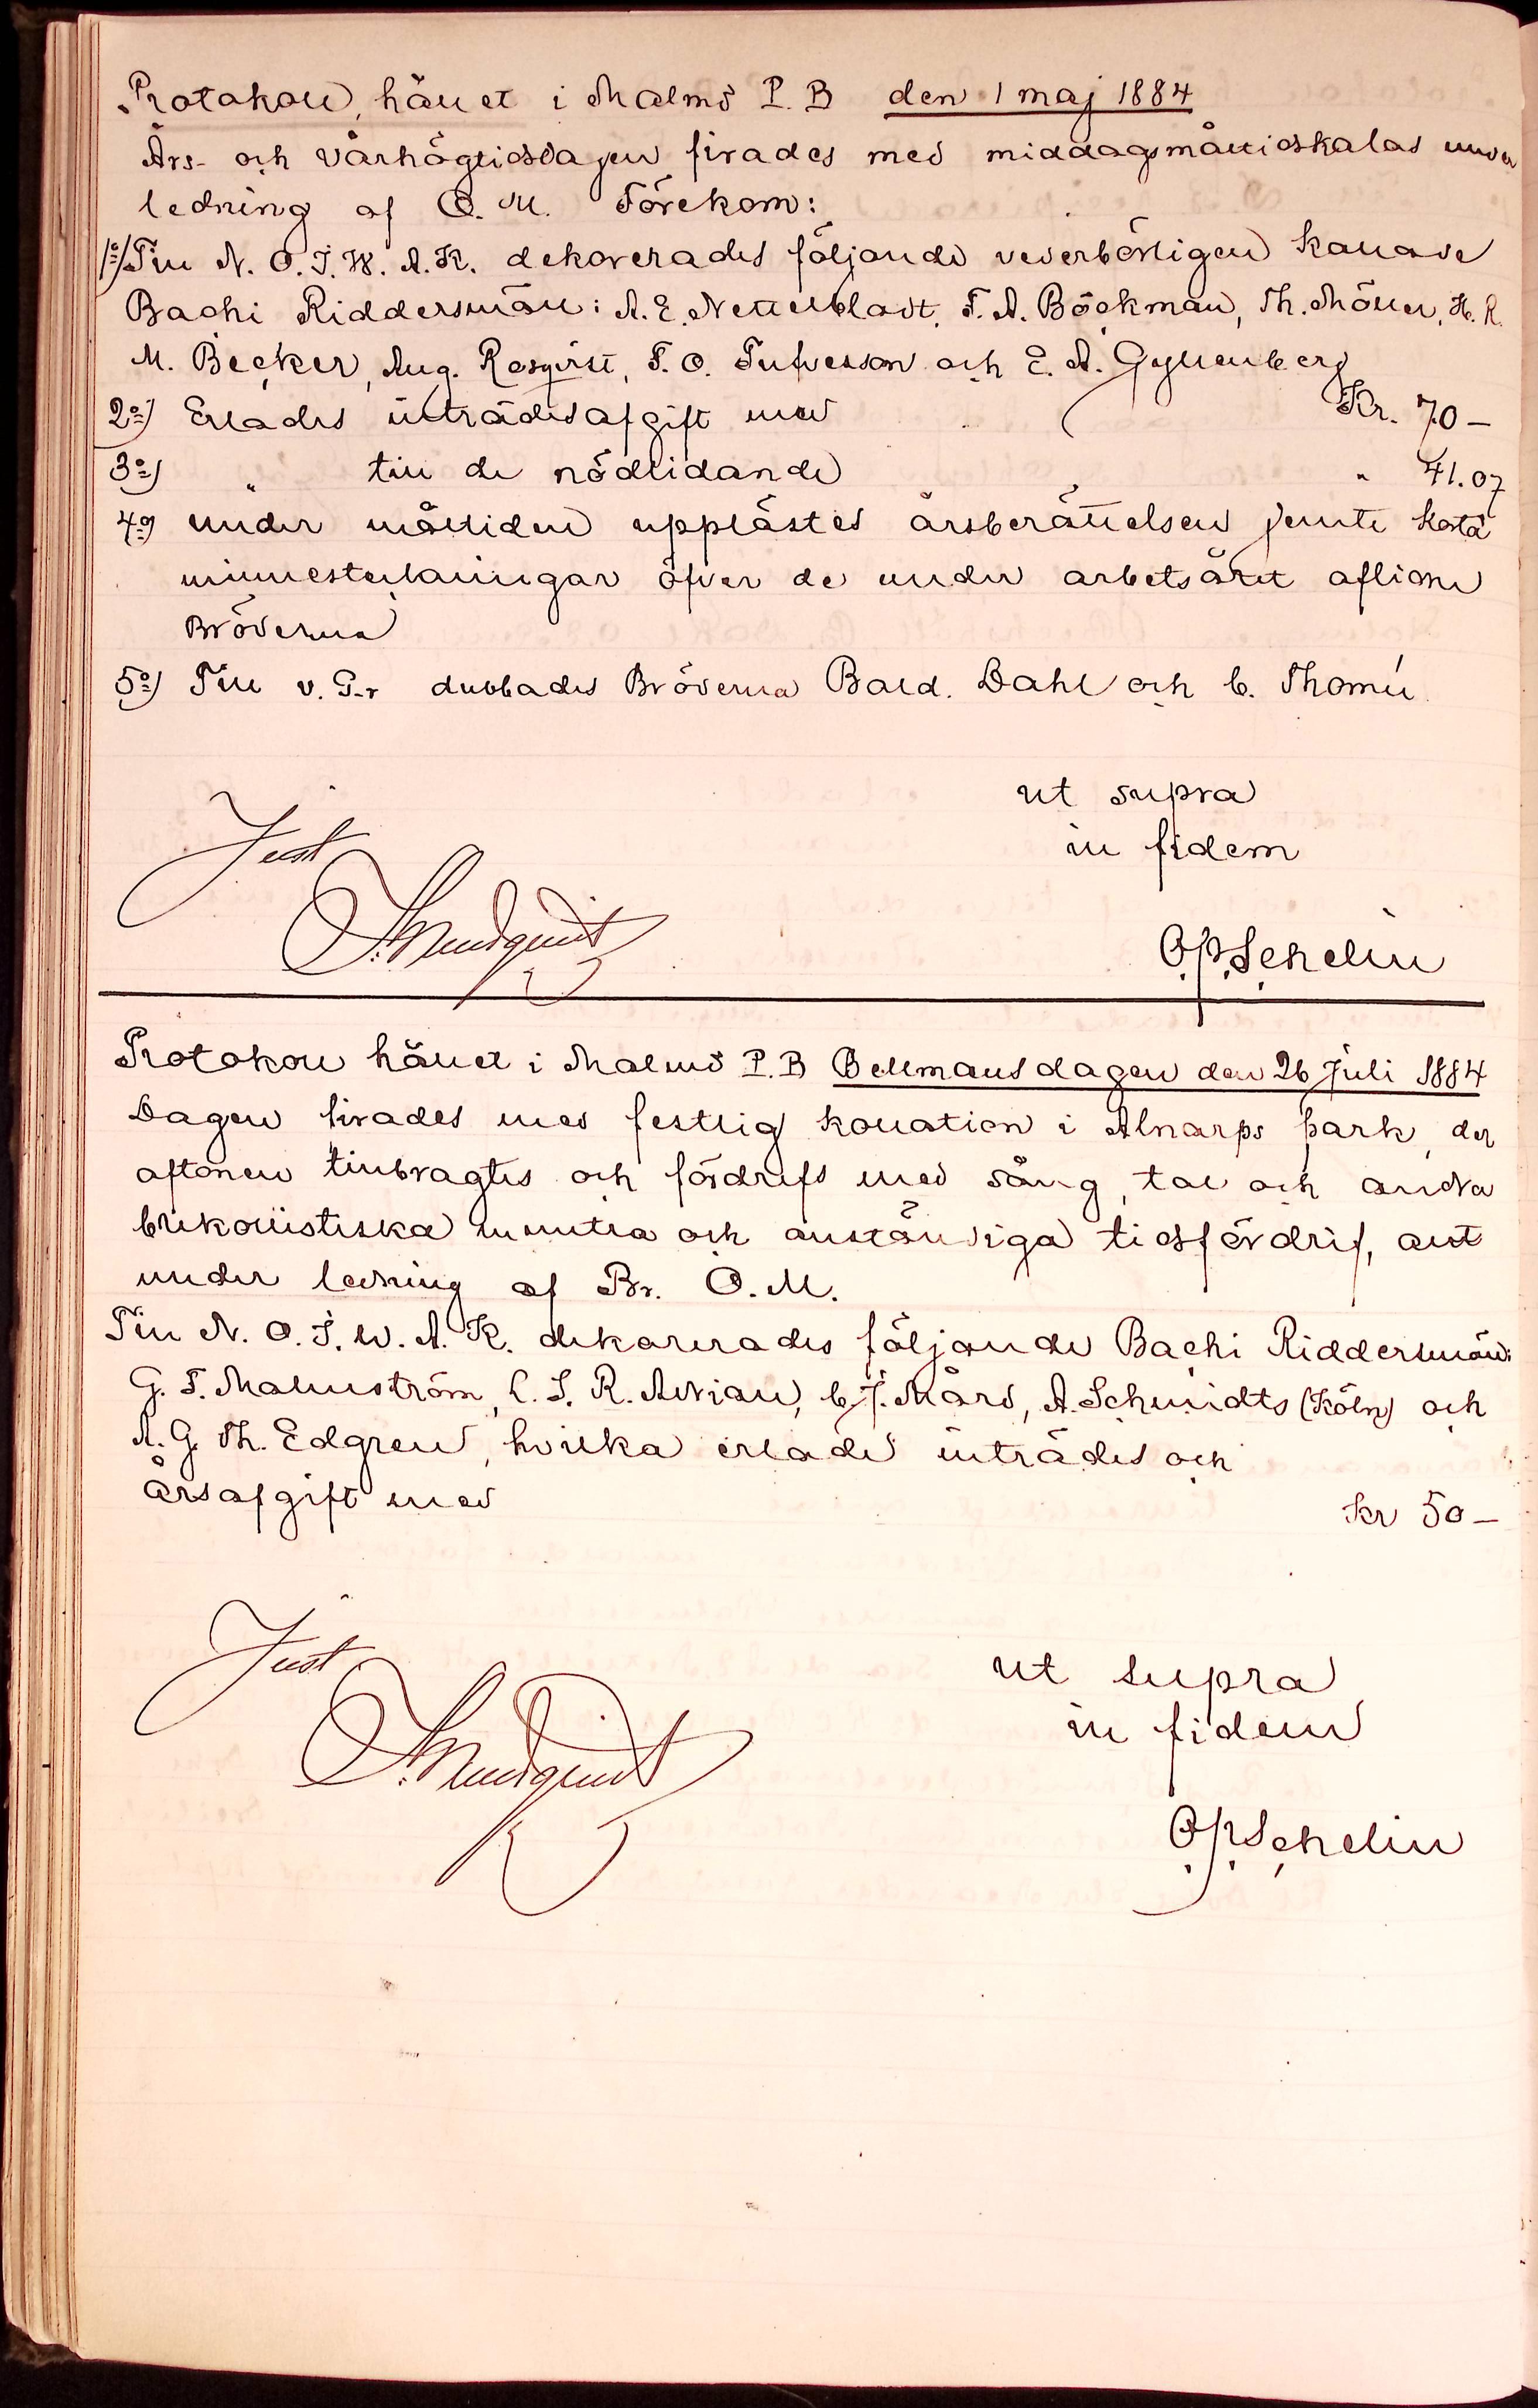 Protokoll, hållet i Malmö P. B den 1 maj 1884
Års- och Vårhögtidsdagen firades med middagsmåltidskalas under
ledning af O. M. Förekom:
1º/ Till N. O. J. W. A. K. dekorerades följande vederbörligen kallade
Bachi Riddersmän: A. E. Netterbladt, F. A. Böckman, Th. Möller, H. R.
M. Becker, Aug. Rosqvist, F. O. Tufvesson och E. A. Gyllenberg
2º/ Erlades inträdesafgift med Kr. 70 –
3º/ " till de nödlidande " 41.07
4º/ under måltiden upplästes årsberättelsen jemte korta
minnesteckningar öfver de under arbetsåret aflidne
Bröderna
5º/ Till v. P-r dubbades Bröderna Bald. Dahl och C. Thomé
ut supra
in fidem
Just
OPSehelin
Protokoll hållet i Malmö P. B Bellmansdagen den 26 Juli 1884
Dagen firades med festlig kollation i Alnarps park, der
aftonen tillbragtes och fördrefs med sång, tal och andra
brikollistiska muntra och anständiga tidsfördrif, allt
under ledning af Br. O. M.
Till N. O. J. W. A. K. dekorerades följande Bachi Riddersmän:
G. F. Malmström, C. S. R. Alvian, C. J. Mård, A. Schmidts (Köln) och
A. G. Th. Edgren, hvilka erlade inträdes och
årsafgift med Kr 50 –
Just
ut supra
in fidem
OPSehelin